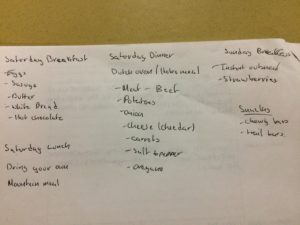 Saturday Breakfast
Eggs
- Sausage
- Butter
- White Bread
- Hot chocolate
Saturday Lunch
Bring your own
Mountain meal
Saturday Dinner
Dutch oven (Hobo meal)
- Meat - Beef
- Potatoes
- onion
- cheese (cheddar)
- carrots
- salt & pepper
- oregano
Sunday Breakfast
- Instant oatmeal
- Strawberries
Snacks
- chewy bars
- trail bars